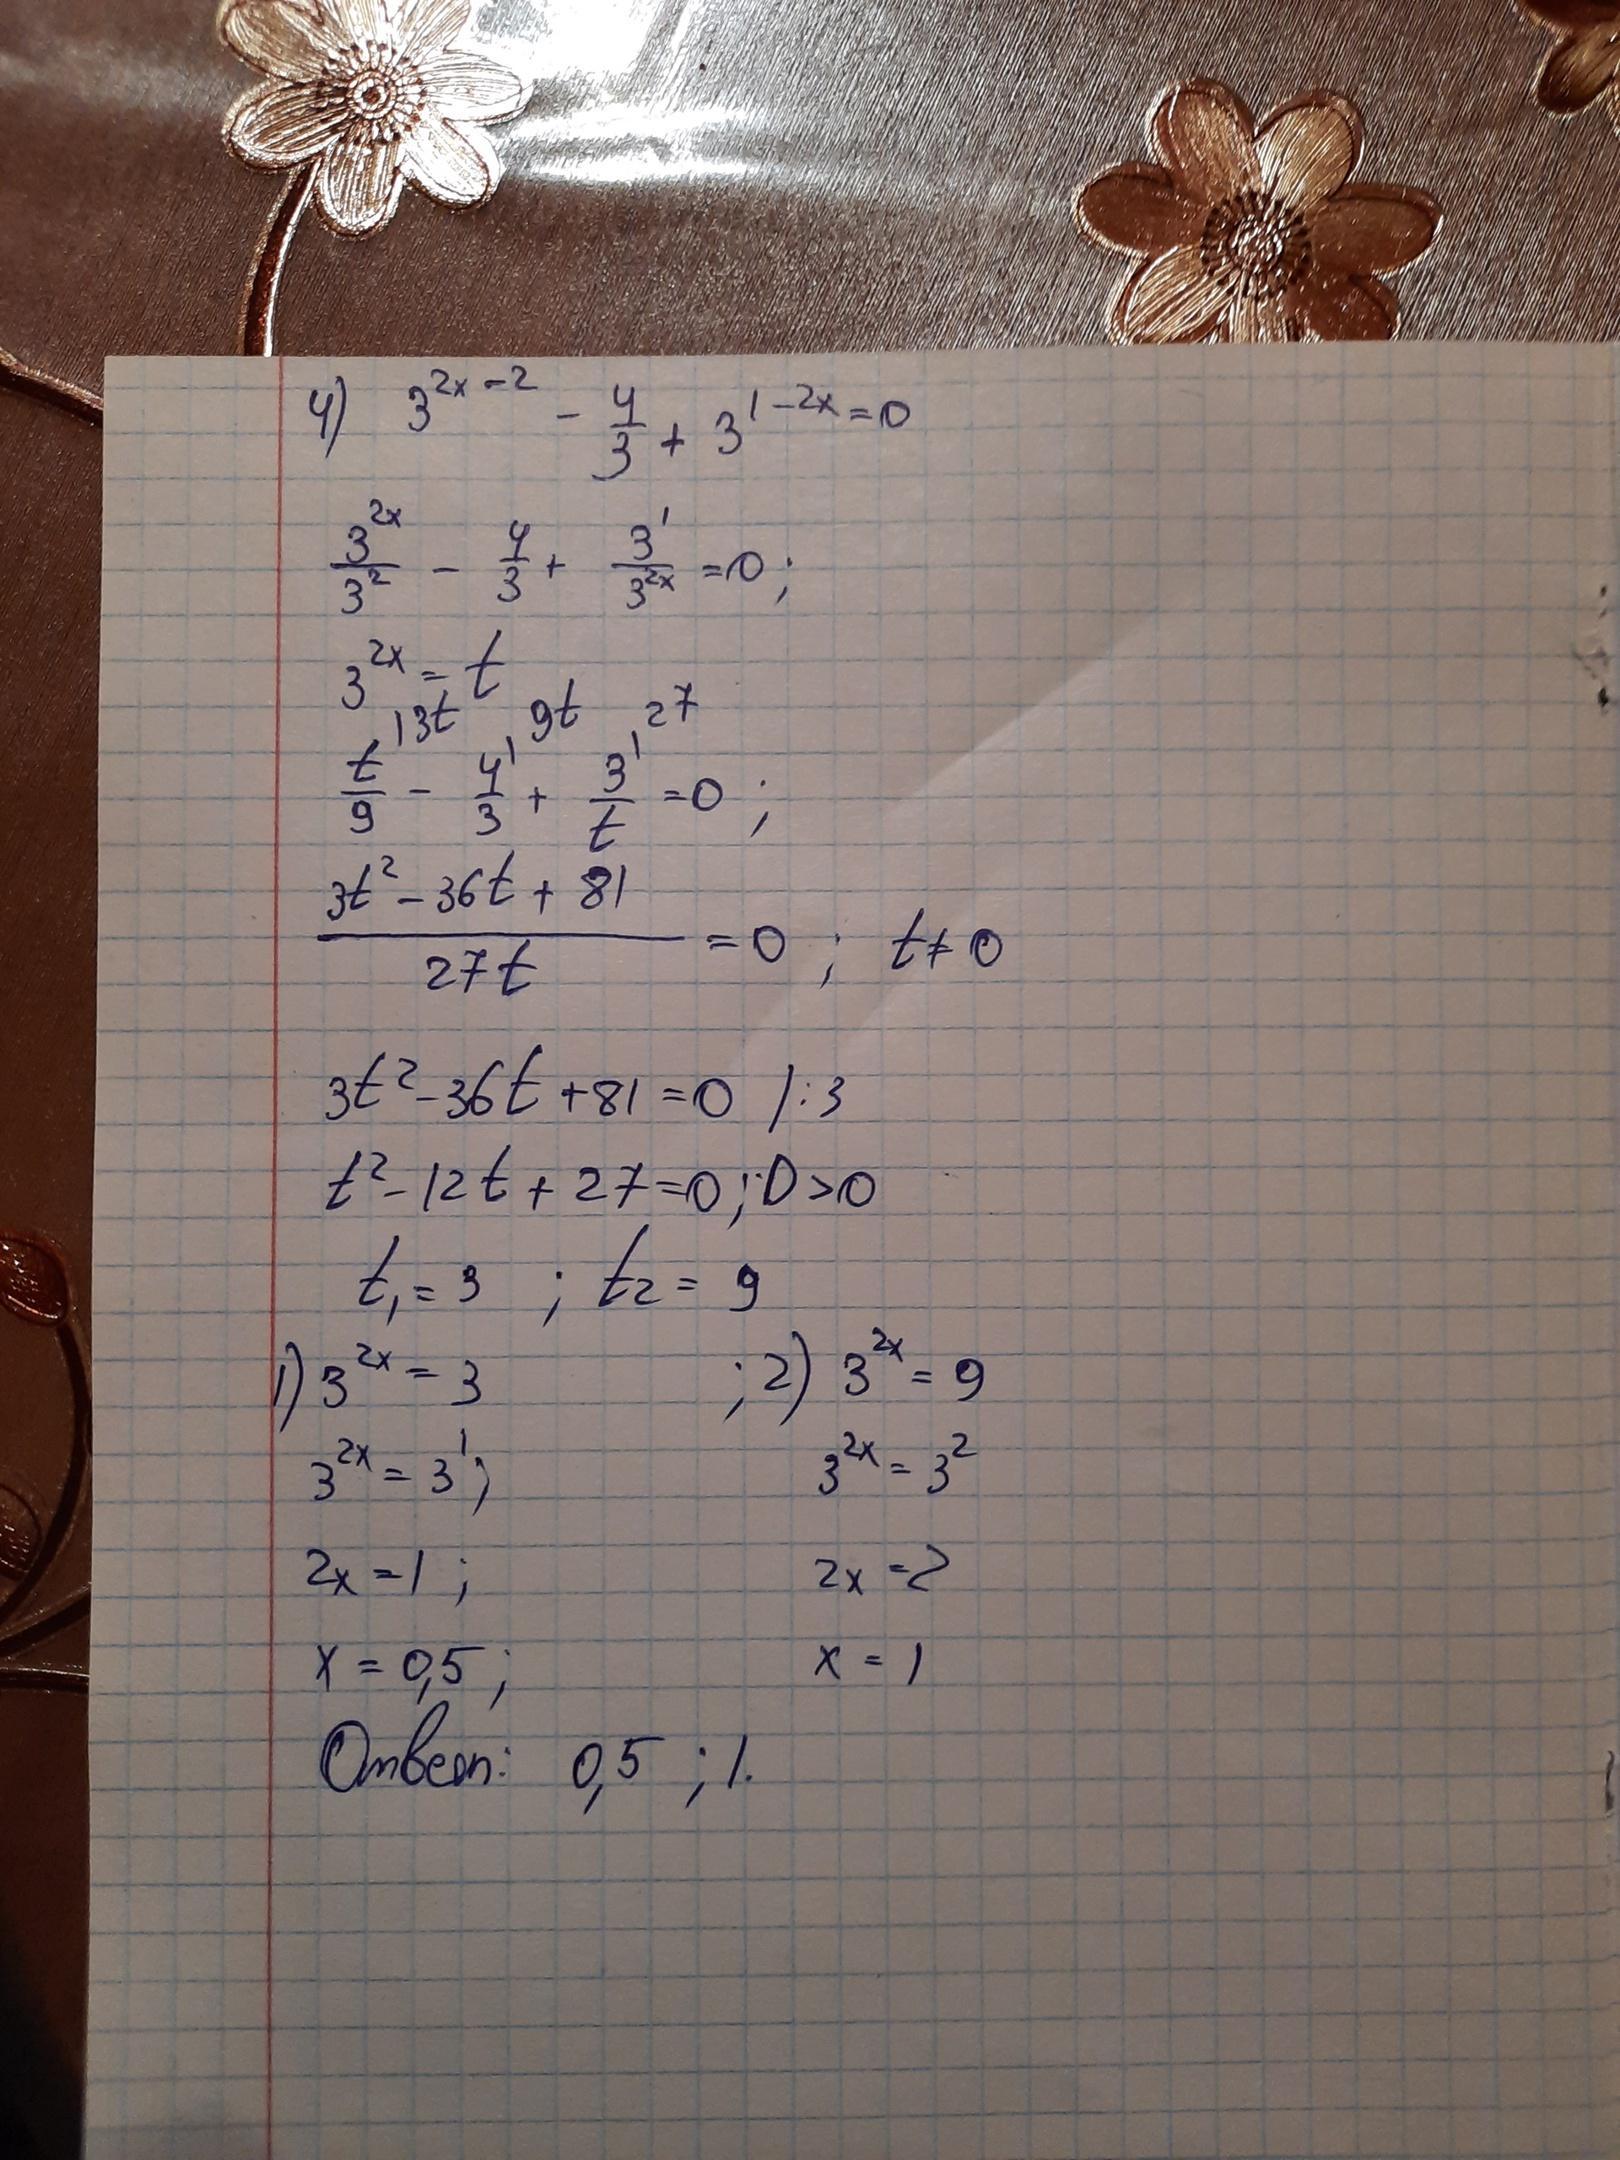 4) 3^{2x-2} - 4/3 + 3^{1-2x} = 0
3^{2x}/3^2 - 4/3 + 3^1/3^{2x} = 0;
3^{2x} = t
t/9^{\3t} - 4/3^{\9t} + 3/t^{\27} = 0;
(3t^2 - 36t + 81)/(27t) = 0; t ≠ 0
3t^2 - 36t + 81 = 0 /:3
t^2 - 12t + 27 = 0; D > 0
t_1 = 3; t_2 = 9
1) 3^{2x} = 3 ; 2) 3^{2x} = 9
3^{2x} = 3^1; 3^{2x} = 3^2
2x = 1; 2x = 2
x = 0,5; x = 1
Ответ: 0,5; 1.